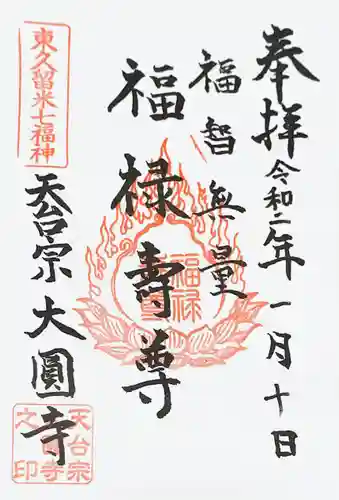 奉拝
令和二年一月十日
福智無量
福禄壽尊
東久留米七福神
天台宗大圓寺
福禄壽
天台宗
寺
之印